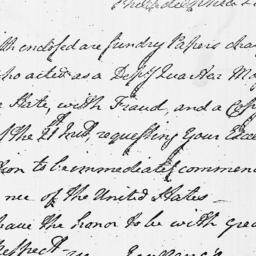 th enclosed are sundry Papers char
ho acted as a Depy Quarter Ma
e State, with Fraud, and a Cop
f the 21 Inst, requesting Your Exce
tion to be immediately commenc
nce of the United States
have the honor to be with grea
Respect